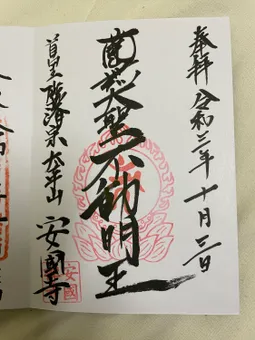 奉拝 令和三年十月三日
大聖不動明王
首里 臨済宗 太平山 安國寺
安國